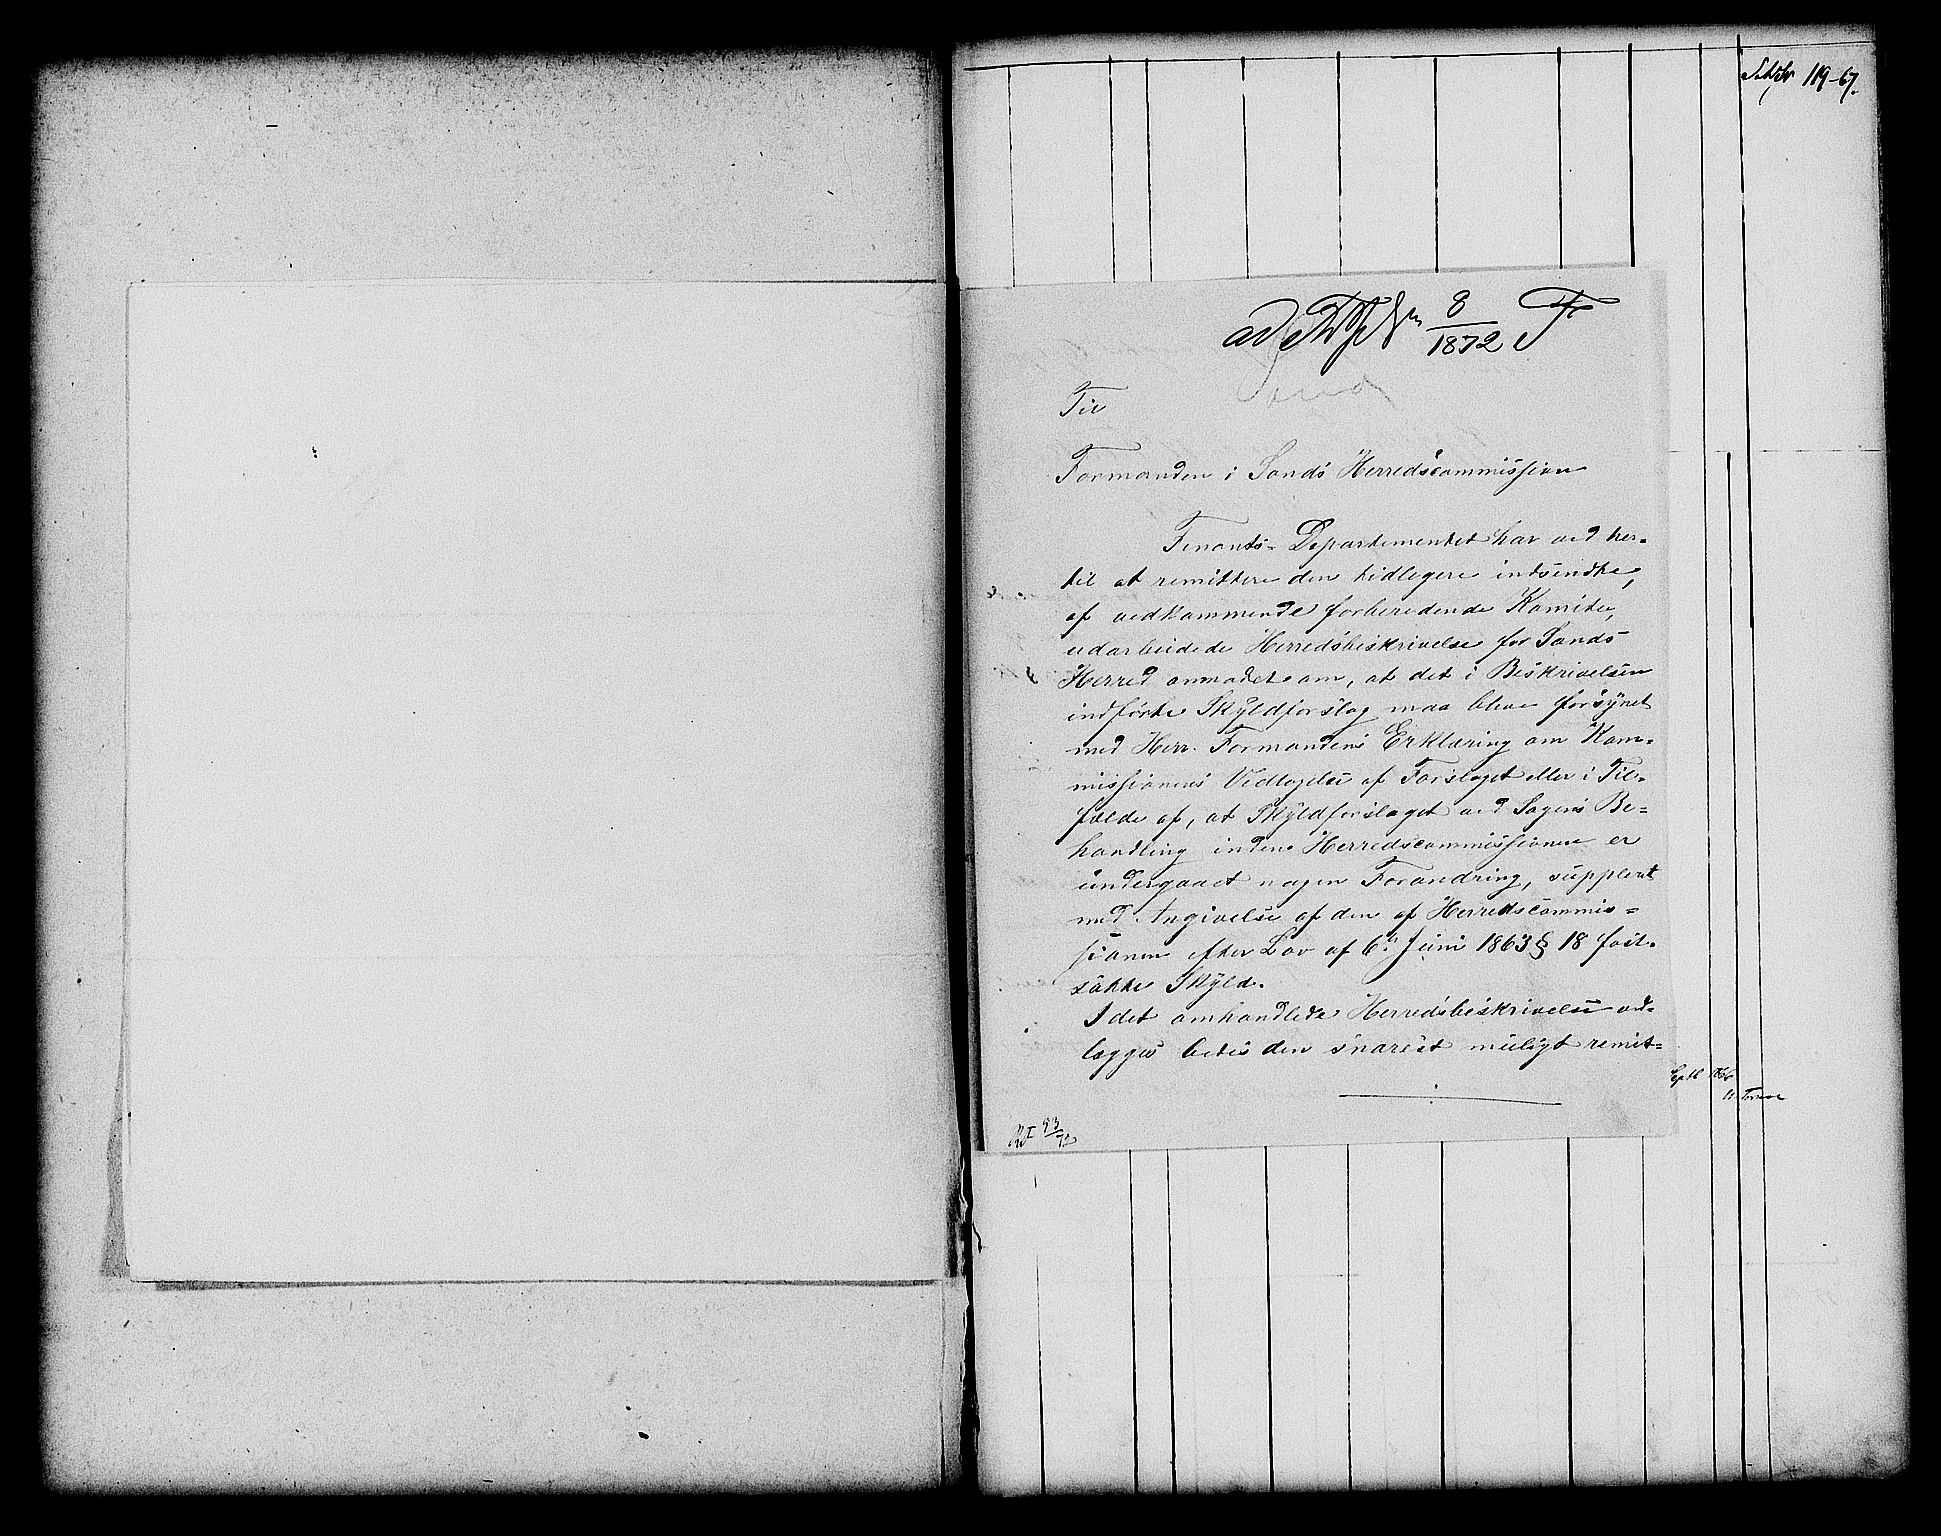 119-67.
ad 8/1872 F
Sand
Til
Formanden i Sands Herredscommission
Finants-Departementet har ved her-
til at remittere den tidligere indsendte,
af vedkommende forberedende Komite,
udarbeidede Herredsbeskrivelse for Sands
Herred anmodet om, at det i Beskrivelsen
indførte Skyldforslag maa blive forsynet
med Herr Formandens Erklæring om Kom-
missionens Vedtagelse af Forslaget eller i Til-
fælde af, at Skyldforslaget ved Sagens Be-
handling inden Herredscommissionen er
undergaaet nogen Forandring, suppleret
med Angivelse af den af Herredscommis-
sionen efter Lov af 6te Juni 1863 § 18 fast-
satte Skyld.
I det omhandlede Herredsbeskrivelse ved-
lægges bedes den snarest muligt remit-
Septb 1866